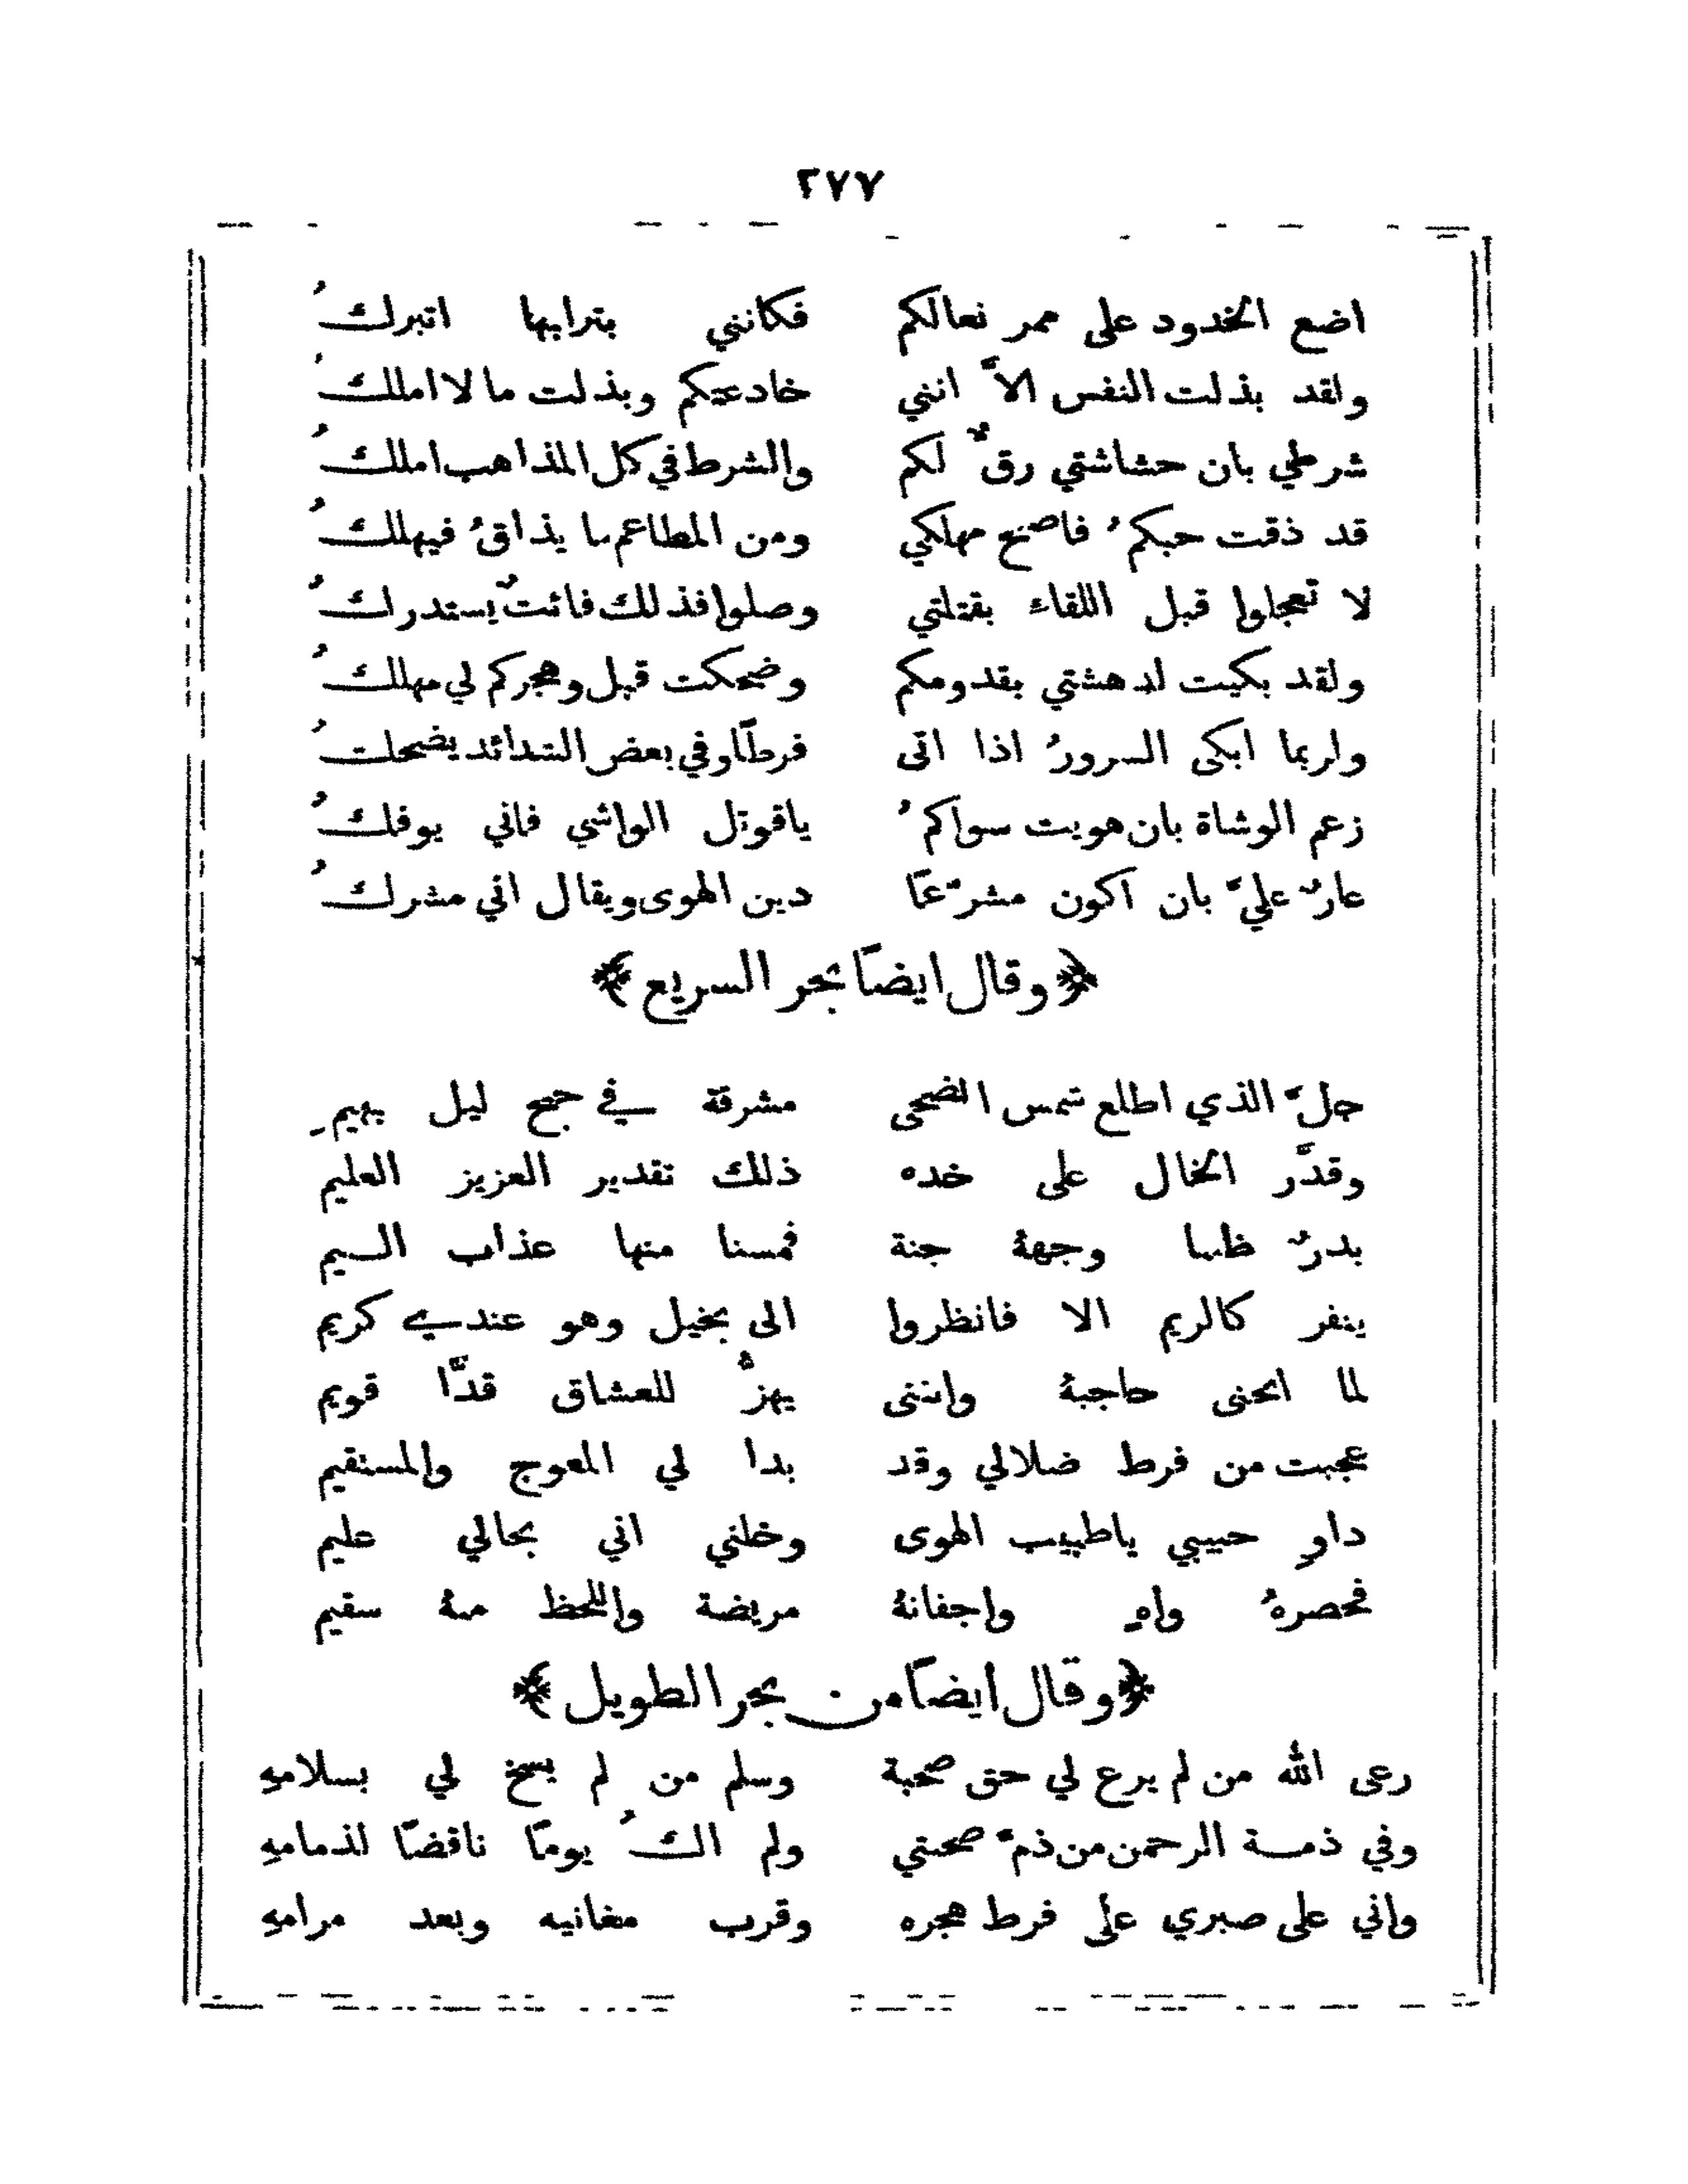 ٢٧٧
اضع الخدود على ممر نعالكم فكانني بترابها اتبركُ
ولقد بذلت النفس الاَّ انني خادعتكم وبذلت ما لا املكُ
شرطي بان حشاشتي رقٌّ لكم والشرط في كل المذاهب املكُ
قد ذقت حبكمُ فاصبح مهلكي ومن المطاعم ما يذاقُ فيهلكُ
لا تعجلوا قبل اللقاء بقتلتي وصلوا فذلك فائتٌ يستدركُ
ولقد بكيت لدهشتي بقدومكم وضحكت قبل وهجركم لي مهلكُ
ولربما ابكى السرورُ اذا اتى فرطًا وفي بعض الشدائد يضحكُ
زعم الوشاة بان هويت سواكمُ ياقوتل الواشي فاني يوفكُ
عارٌ عليَّ بان اكون مشرّعًا دين الهوى ويقال اني مشركُ
﴿وقال ايضًا بحر السريع﴾
جلَّ الذي اطلع شمس الضحى مشرقة في جنح ليل بهيمِ
وقدَّر الخال على خده ذلك تقدير العزيز العليم
بدرٌ ظننا وجههُ جنة فمسنا منها عذاب اليم
ينفر كالريم الا فانظروا الى بخيل وهو عندي كريم
لما انحنى حاجبهُ وانثنى يهزُّ للعشاق قدًّا قويم
عجبت من فرط ضلالي وقد بدا لي المعوج والمستقيم
داوِ حبيبي ياطبيب الهوى وخلني اني بحالي عليم
فخصرهُ واهٍ واجفانهُ مريضة واللحظ منهُ سقيم
﴿وقال ايضًا من بحر الطويل﴾
رعى الله من لم يرع لي حق صحبة وسلم من لم يسخ لي بسلامهِ
وفي ذمة الرحمن من ذمَّ صحبتي ولم الكُ يومًا ناقضًا لذمامهِ
واني على صبري على فرط هجره وقرب مغانيه وبعد مرامهِ